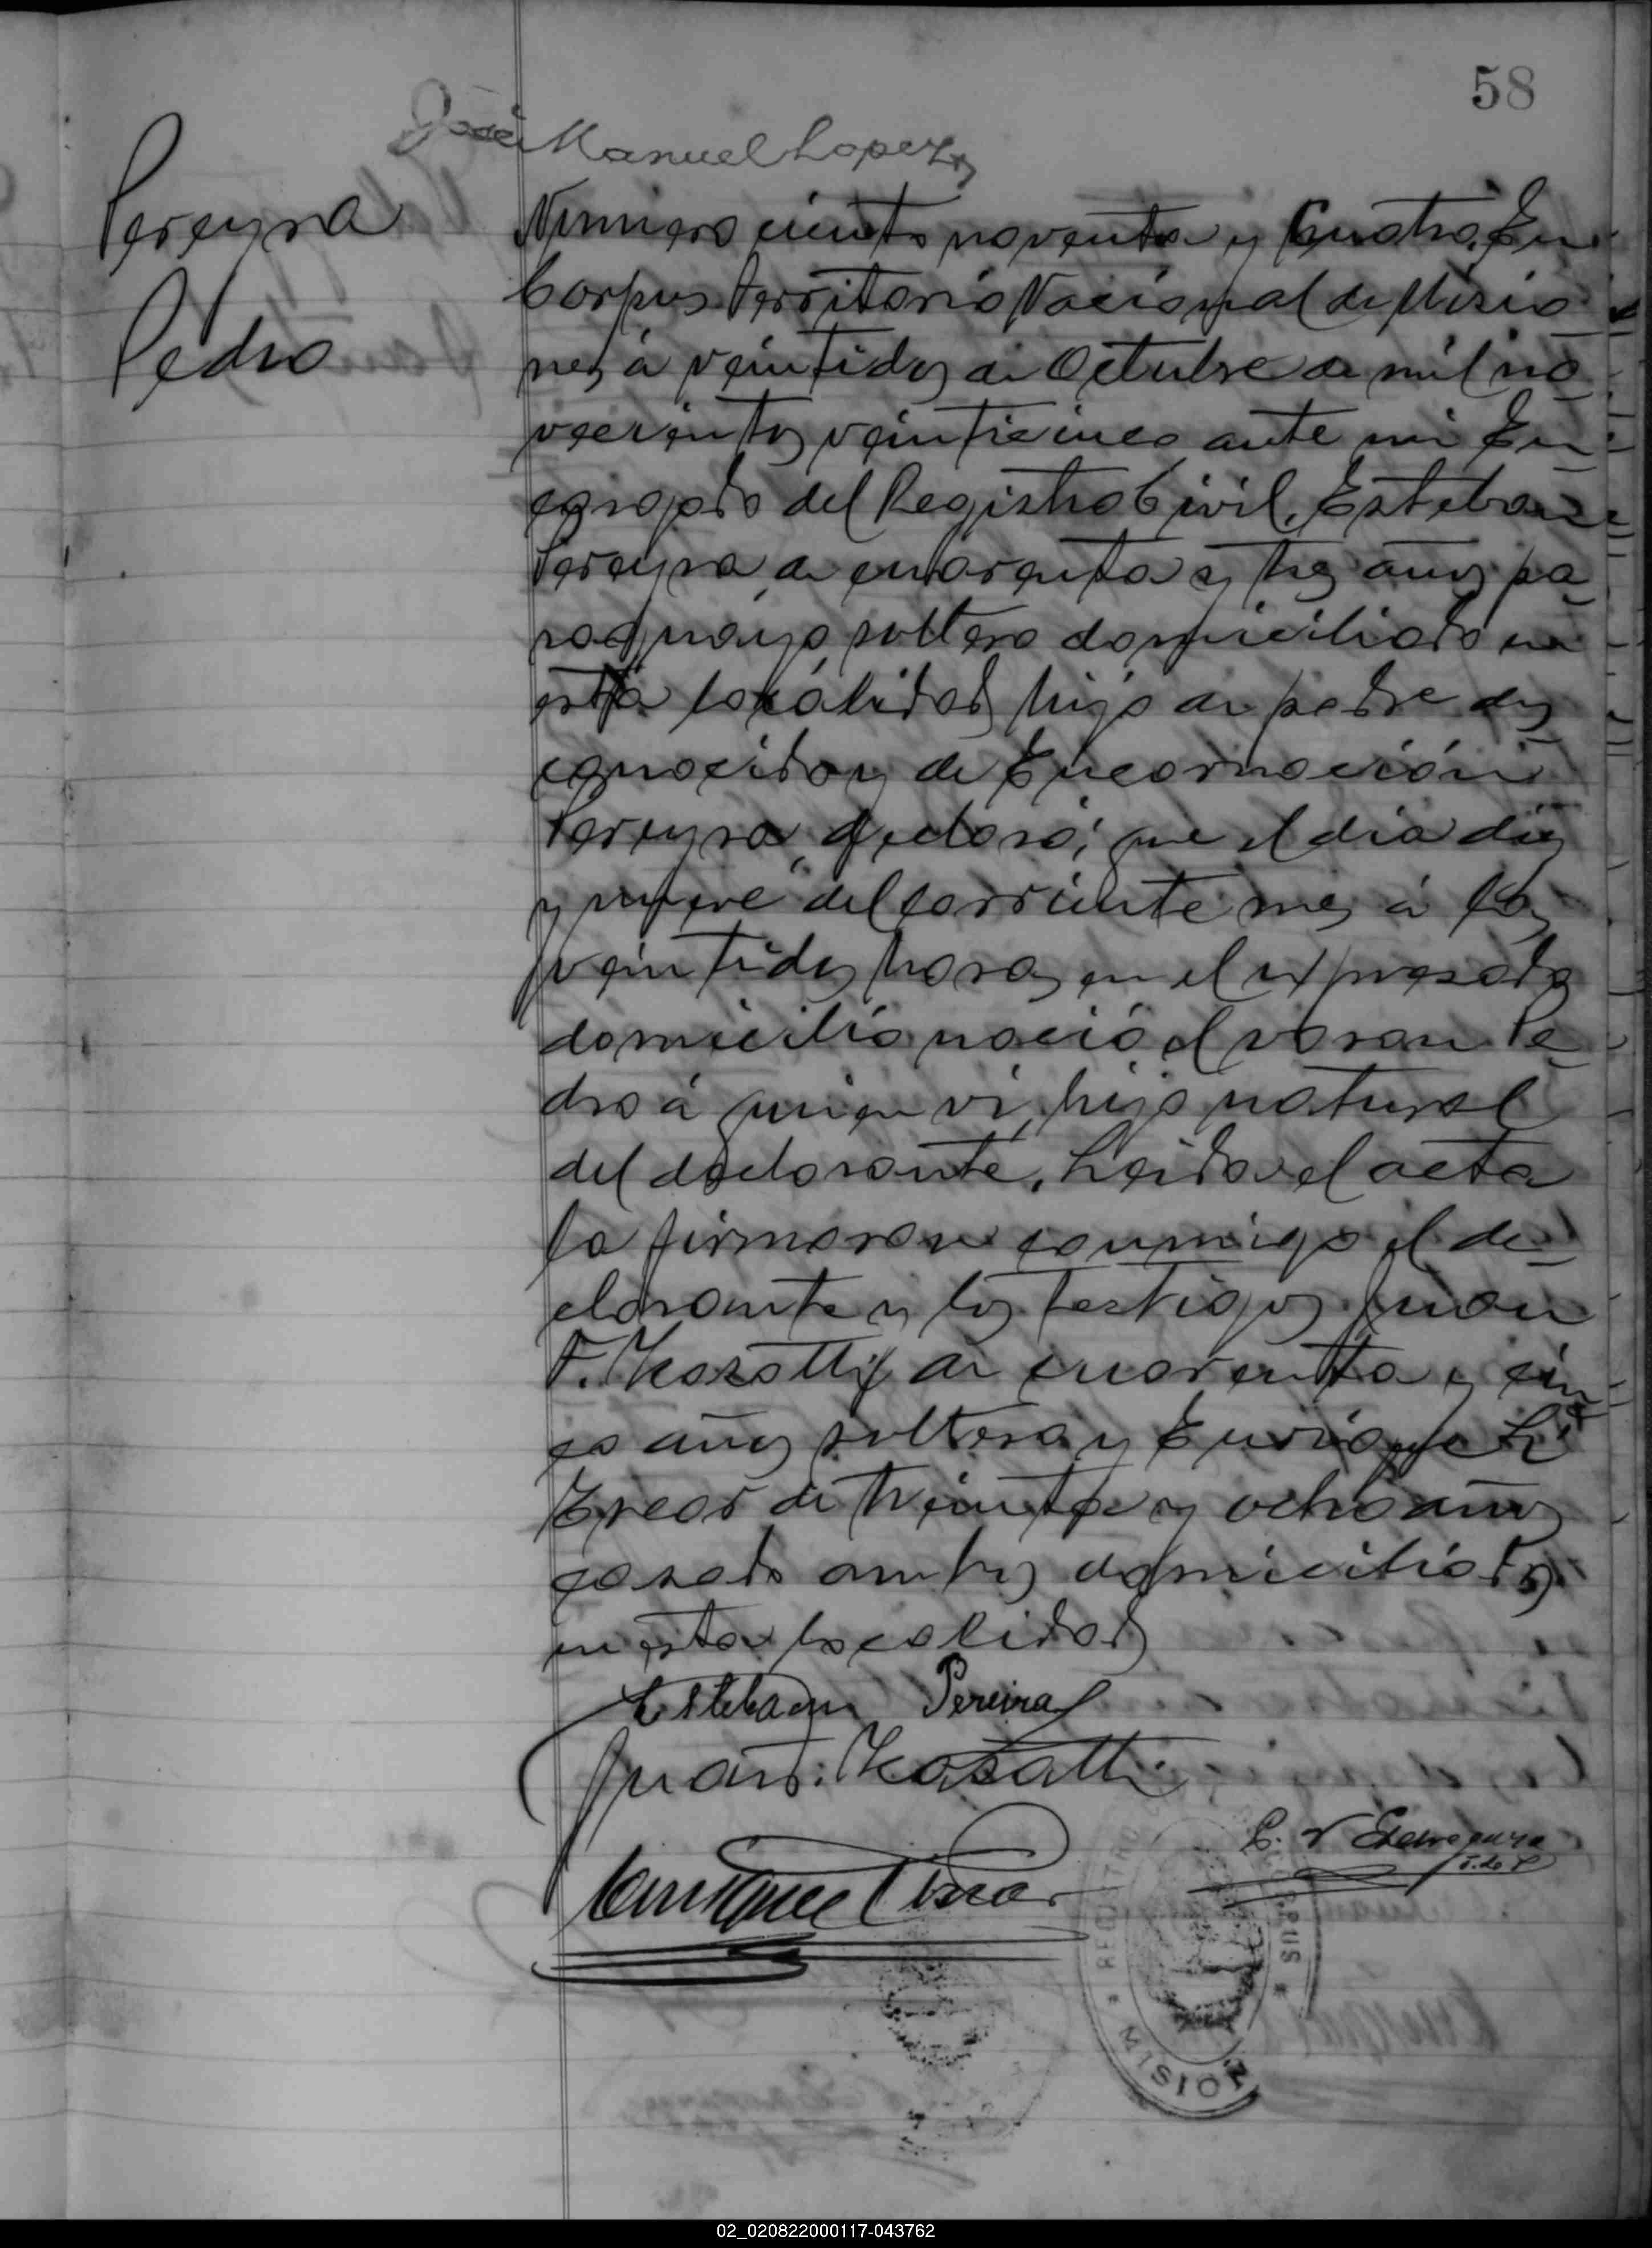 58
José Manuel Lopez
Pereyra
Pedro
Numero ciento noventa y Cuatro. En
Corpus Territorio Nacional de Misio
nes, á veintidos de Octubre de mil no
vecientos veinticinco, ante mi En
cargado del Registro Civil, Esteban
Pereyra, de cuarenta y tres años, pa
raguayo, soltero domiciliado en
esta localidad, hijo de padre des
conocido y de Encarnación
Pereyra, declaró; que el dia diez
y nueve del corriente mes á las
veintidos horas en el expresado
domicilio nació el varon Pe
dro á quien vi, hijo natural
del declarante. Leida el acta
la firmaron conmigo el de
clarante y los testigos Juan
F. de cuarenta y cin
co años soltero y Enrique
de treinta y ocho años
casado ambos domiciliados
en esta localidad
Esteban Pereira
Juan
Enrique
REGISTRO
CORPUS
* MISIONES *
02_020822000117-043762